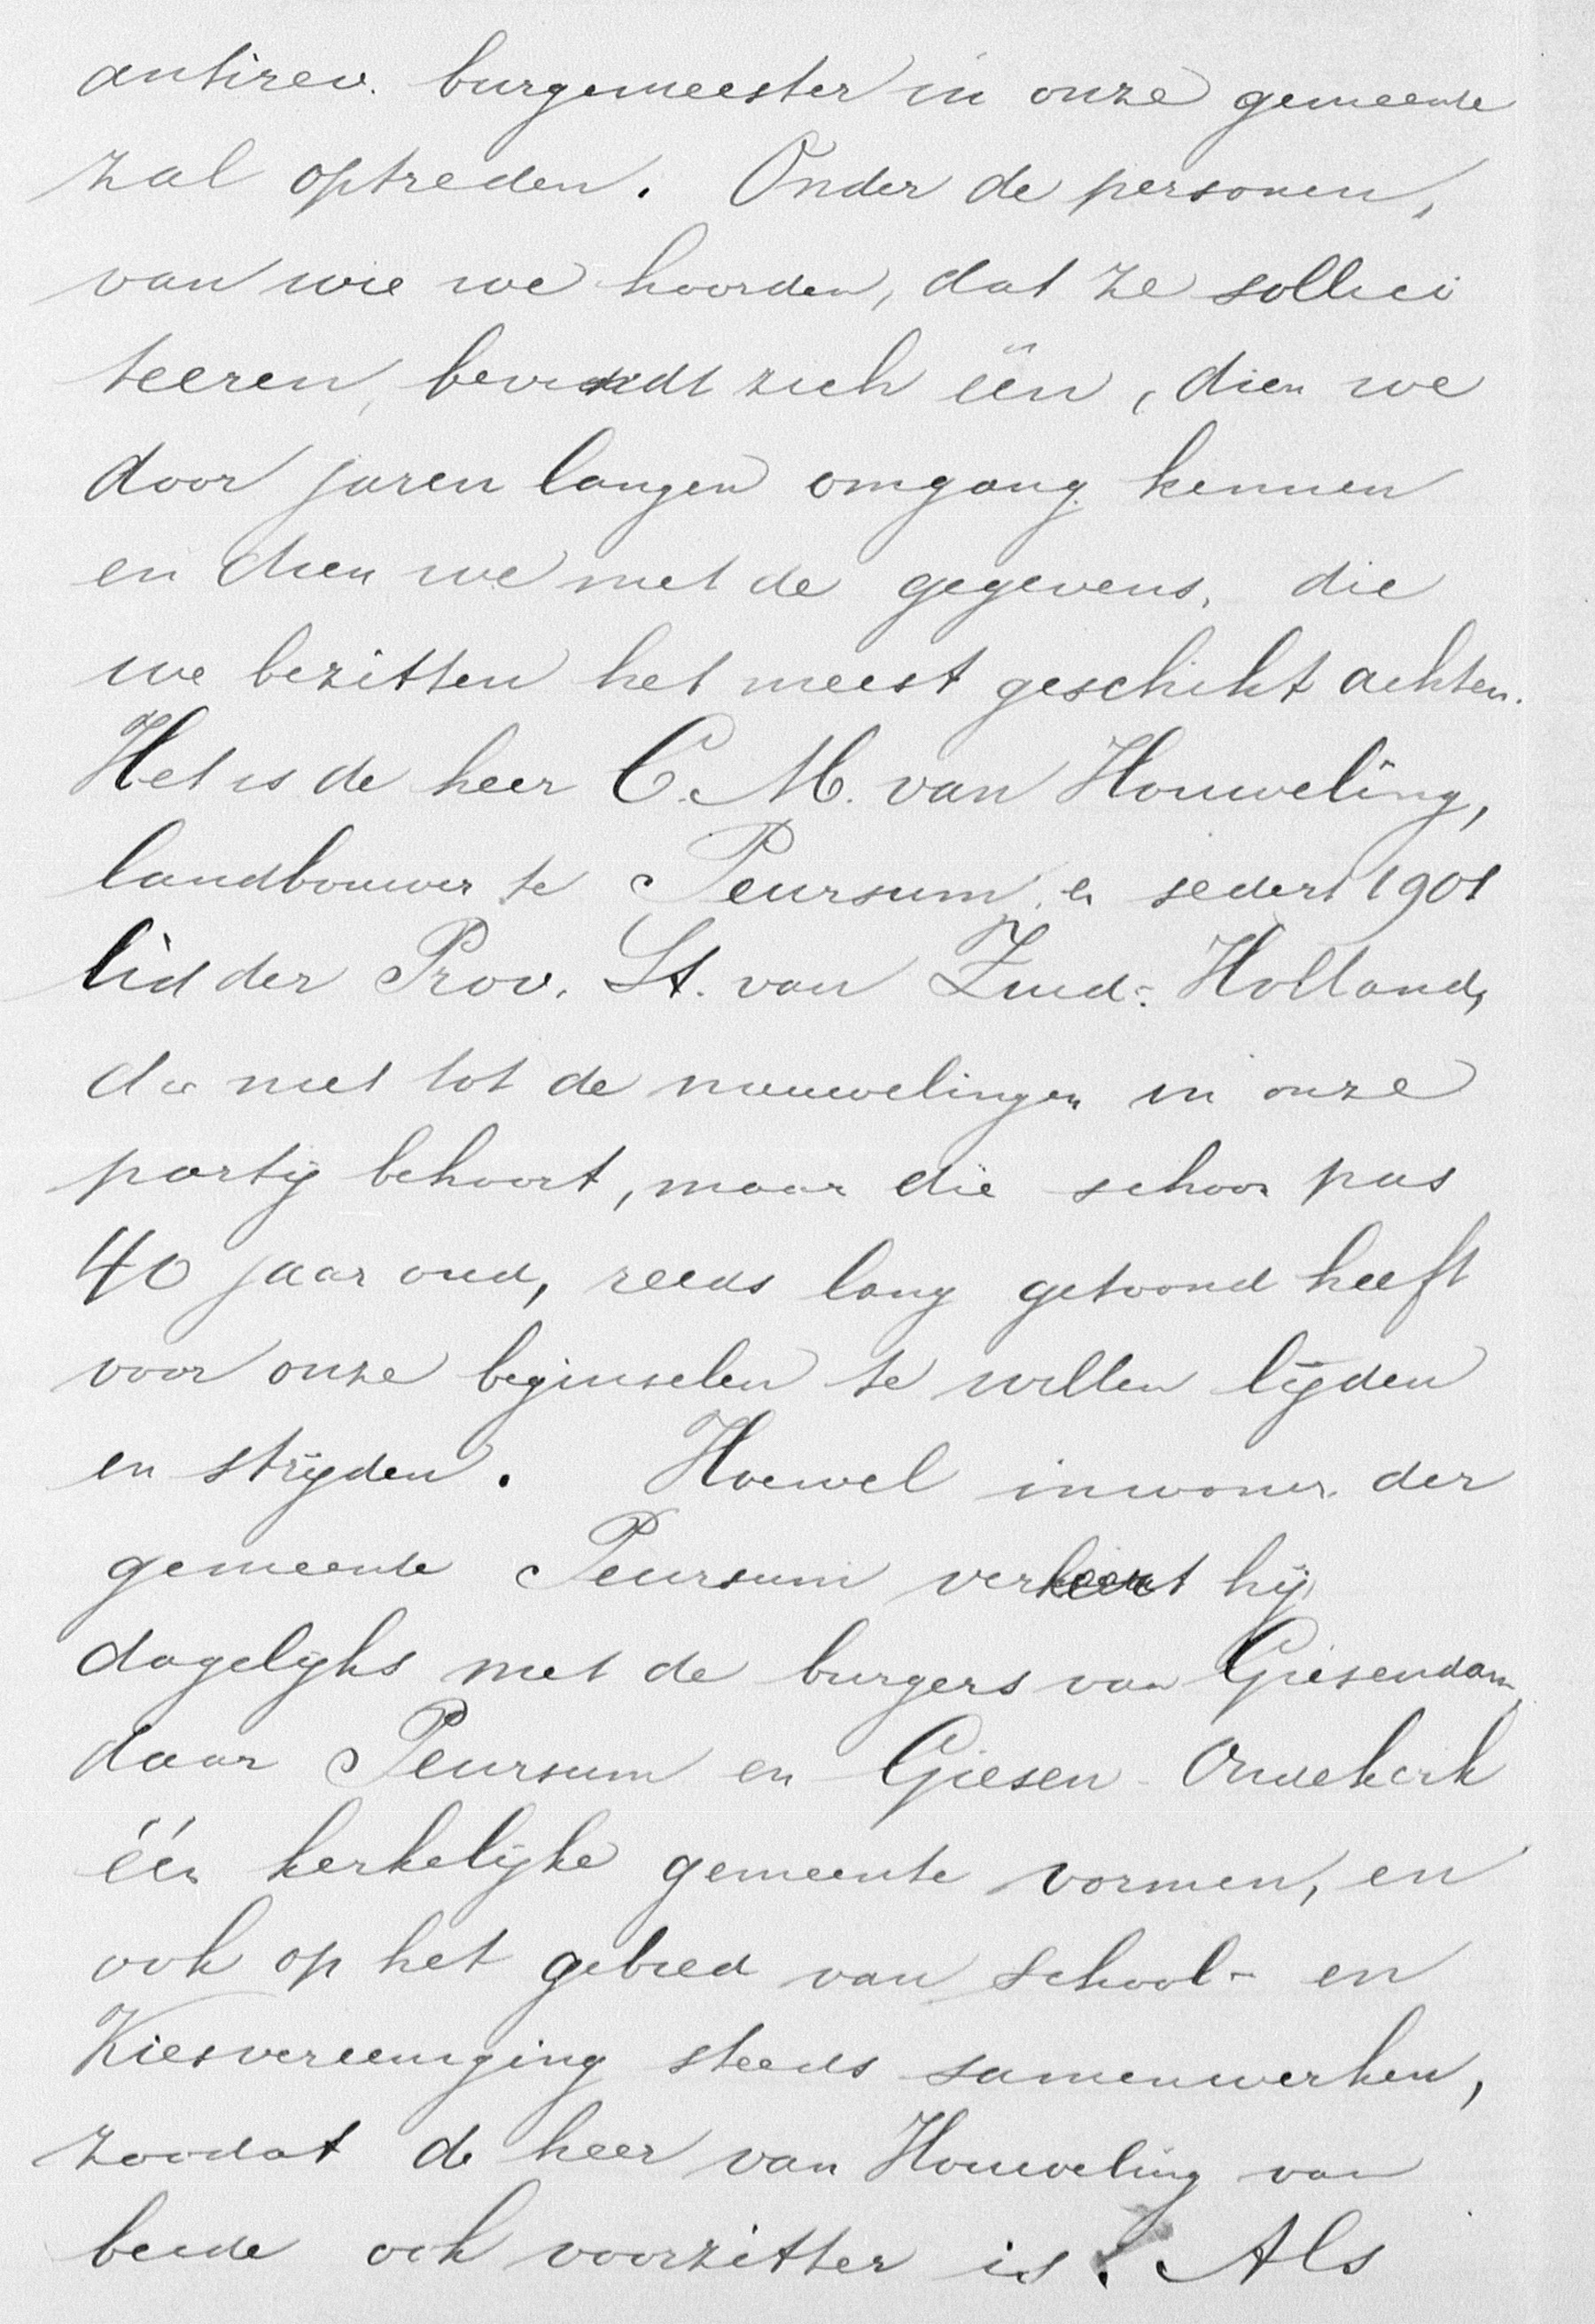 antirev. burgemeester in onze gemeente
zal optreden. Onder de personen,
van wie we hoorden, dat ze sollici
teeren, bevindt zich één, dien we
door jaren langen omgang kennen
en dien we met de gegevens, die
we bezitten het meest geschikt achten.
Het is de heer C. M. van Houweling,
landbouwer te Peursum, en sedert 1901
lid der Prov. St. van Zuid-Holland,
die niet tot de nieuwelingen in onze
partij behoort, maar die schoon pas
40 jaar oud, reeds lang getoond heeft
voor onze beginselen te willen lijden
en strijden. Hoewel inwoner der
gemeente Peursum verkeert hij
dagelijks met de burgers van Giesendam,
daar Peursum en Giesen-Oudekerk
één kerkelijke gemeente vormen, en
ook op het gebied van school- en
Kiesvereeniging steeds samenwerken,
zoodat de heer van Houweling van
beide ook voorzitter is. Als